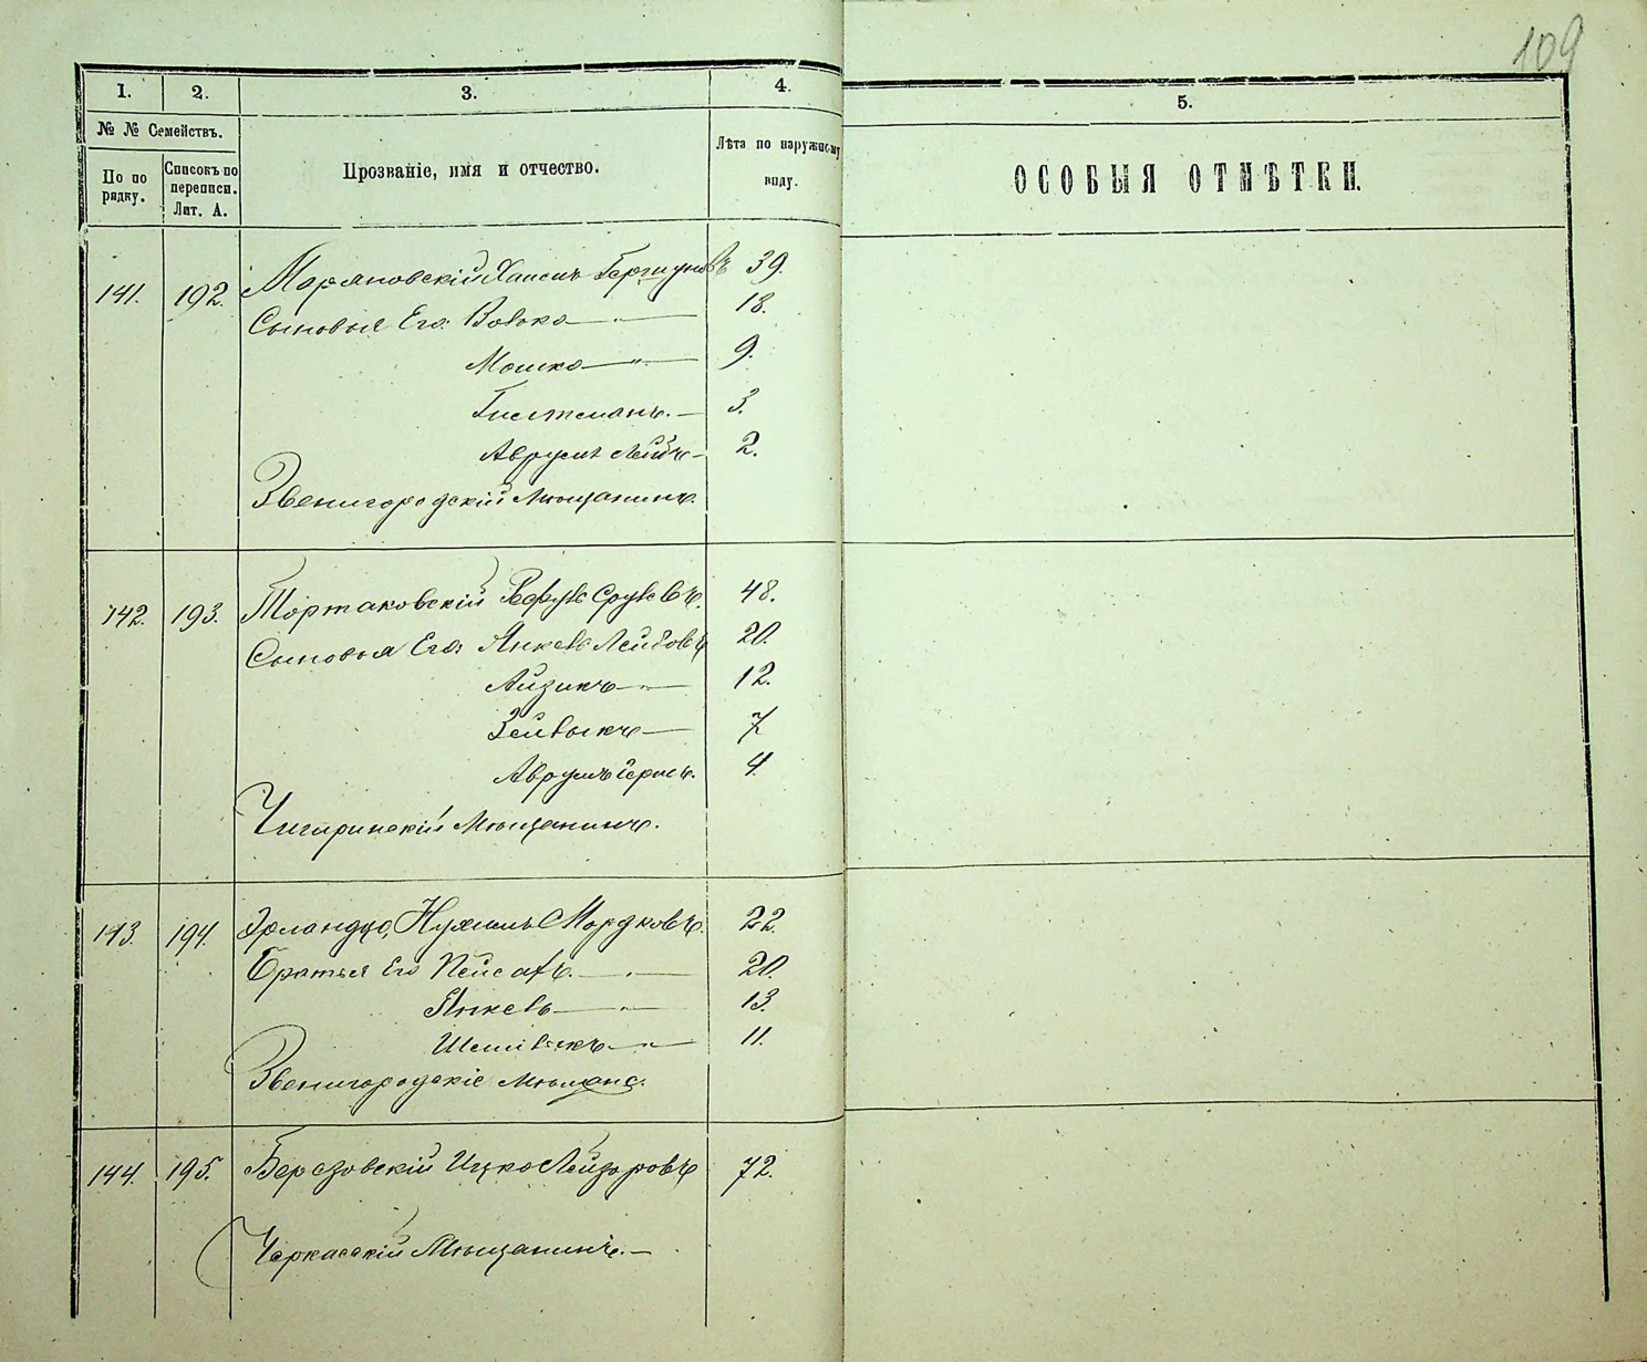 109
1. 2. 3. 4. 5.
№ № Семействъ.
По по рядку. Списокъ по переписи. Лит. А. Прозваніе, имя и отчество. Лѣта по наружному виду. ОСОБЫЯ ОТМѢТКИ.
141. 192. Маряновскій Хаимъ Гершуновъ 39.
Сыновья Его: Волько — " — 18.
Мошко — " — 9.
3.
Аврумъ Лейбъ — 2.
Звенигородскій Мѣщанинъ.
142. 193. Тортаковскій Сруль въ. 48.
Сыновья Его: Янкель Лейбовъ 20.
Айзикъ — " — 12.
Зейвыкъ — 7
Аврумъ Герш ъ. 4.
Чигиринскій Мѣщанинъ.
143. 194. Нухимъ Мордковъ. 22.
Братья Его Пейсахъ. — " — 20.
Янкель — " — 13.
— " — 11.
Звенигородскіе Мѣщане.
144. 195. Березовскій Ицко Лейзоровъ 72.
Черкасскій Мѣщанинъ. —